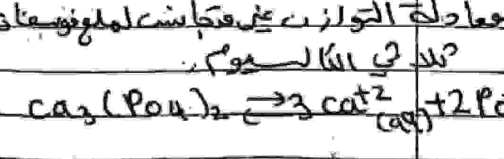 معادلة التوازن غير متجانس لملح فوسفات
ثلاثي الكالسيوم:
Ca₃(PO₄)₂ ⇄ 3 Ca⁺²(aq) + 2 P